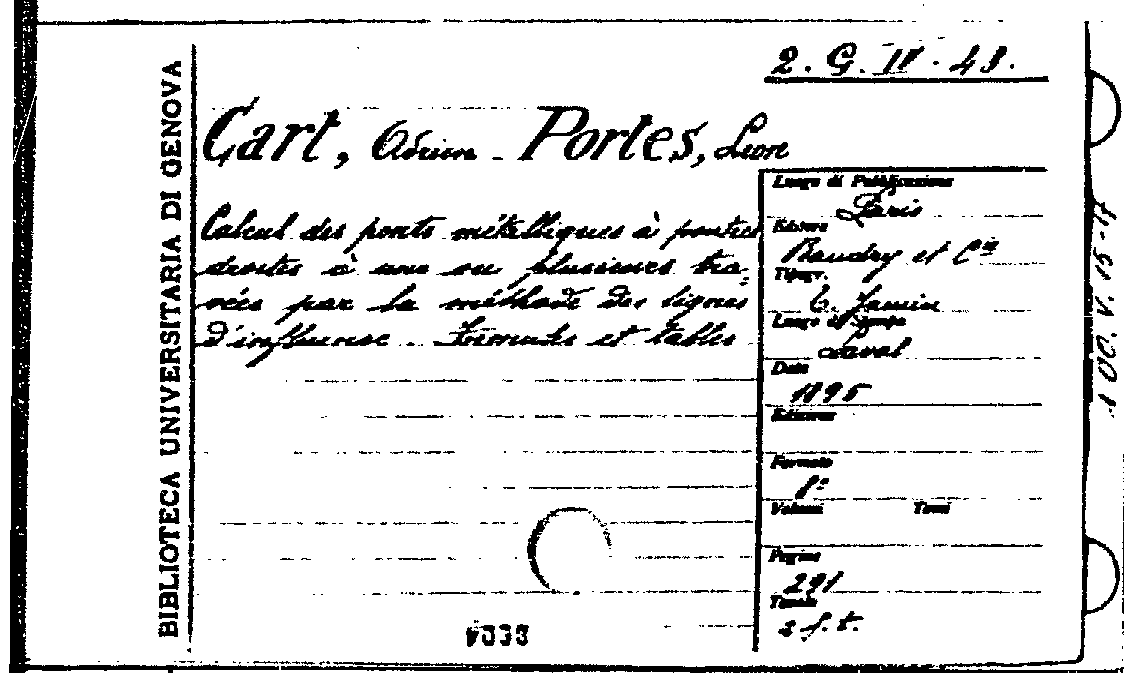 2. G. IV. 43.
Cart, Adrien - Portes, Léon
Calcul des ponts métalliques à poutres
droites à une ou plusieurs tra-
vées par la méthode des lignes
d'influence. Formules et tables
BIBLIOTECA UNIVERSITARIA DI GENOVA
Luogo di Pubblicazione
Paris
Editore
Baudry et Cie
Tipogr.
E. Jamin
Luogo di Stampa
Laval
Data
1895
Edizione
Formato
8°
Volumi Tomi
Pagine
291
Tavole
2 f. t.